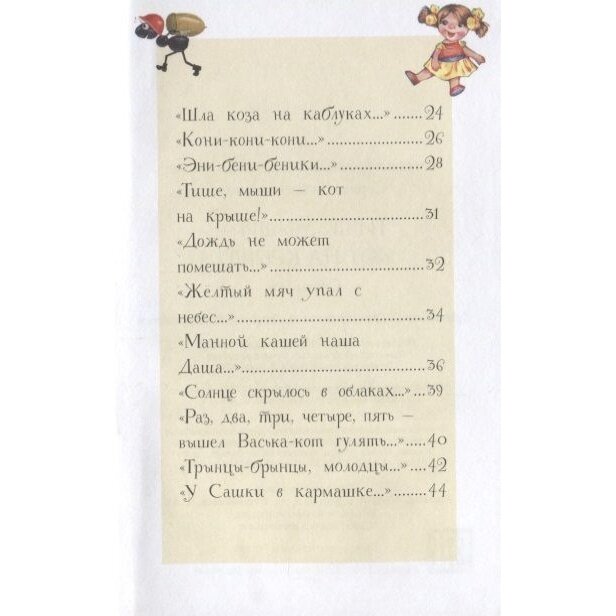 «Шла коза на каблуках...»......24
«Кони-кони-кони...»................26
«Эни-бени-беники...»..............28
«Тише, мыши – кот
на крыше!»............................31
«Дождь не может
помешать...»............................32
«Жёлтый мяч упал с
небес...»..................................34
«Манной кашей наша
Даша...»..................................36
«Солнце скрылось в облаках...»..39
«Раз, два, три, четыре, пять –
вышел Васька-кот гулять...».....40
«Трынцы-брынцы, молодцы...»....42
«У Сашки в кармашке...».......44